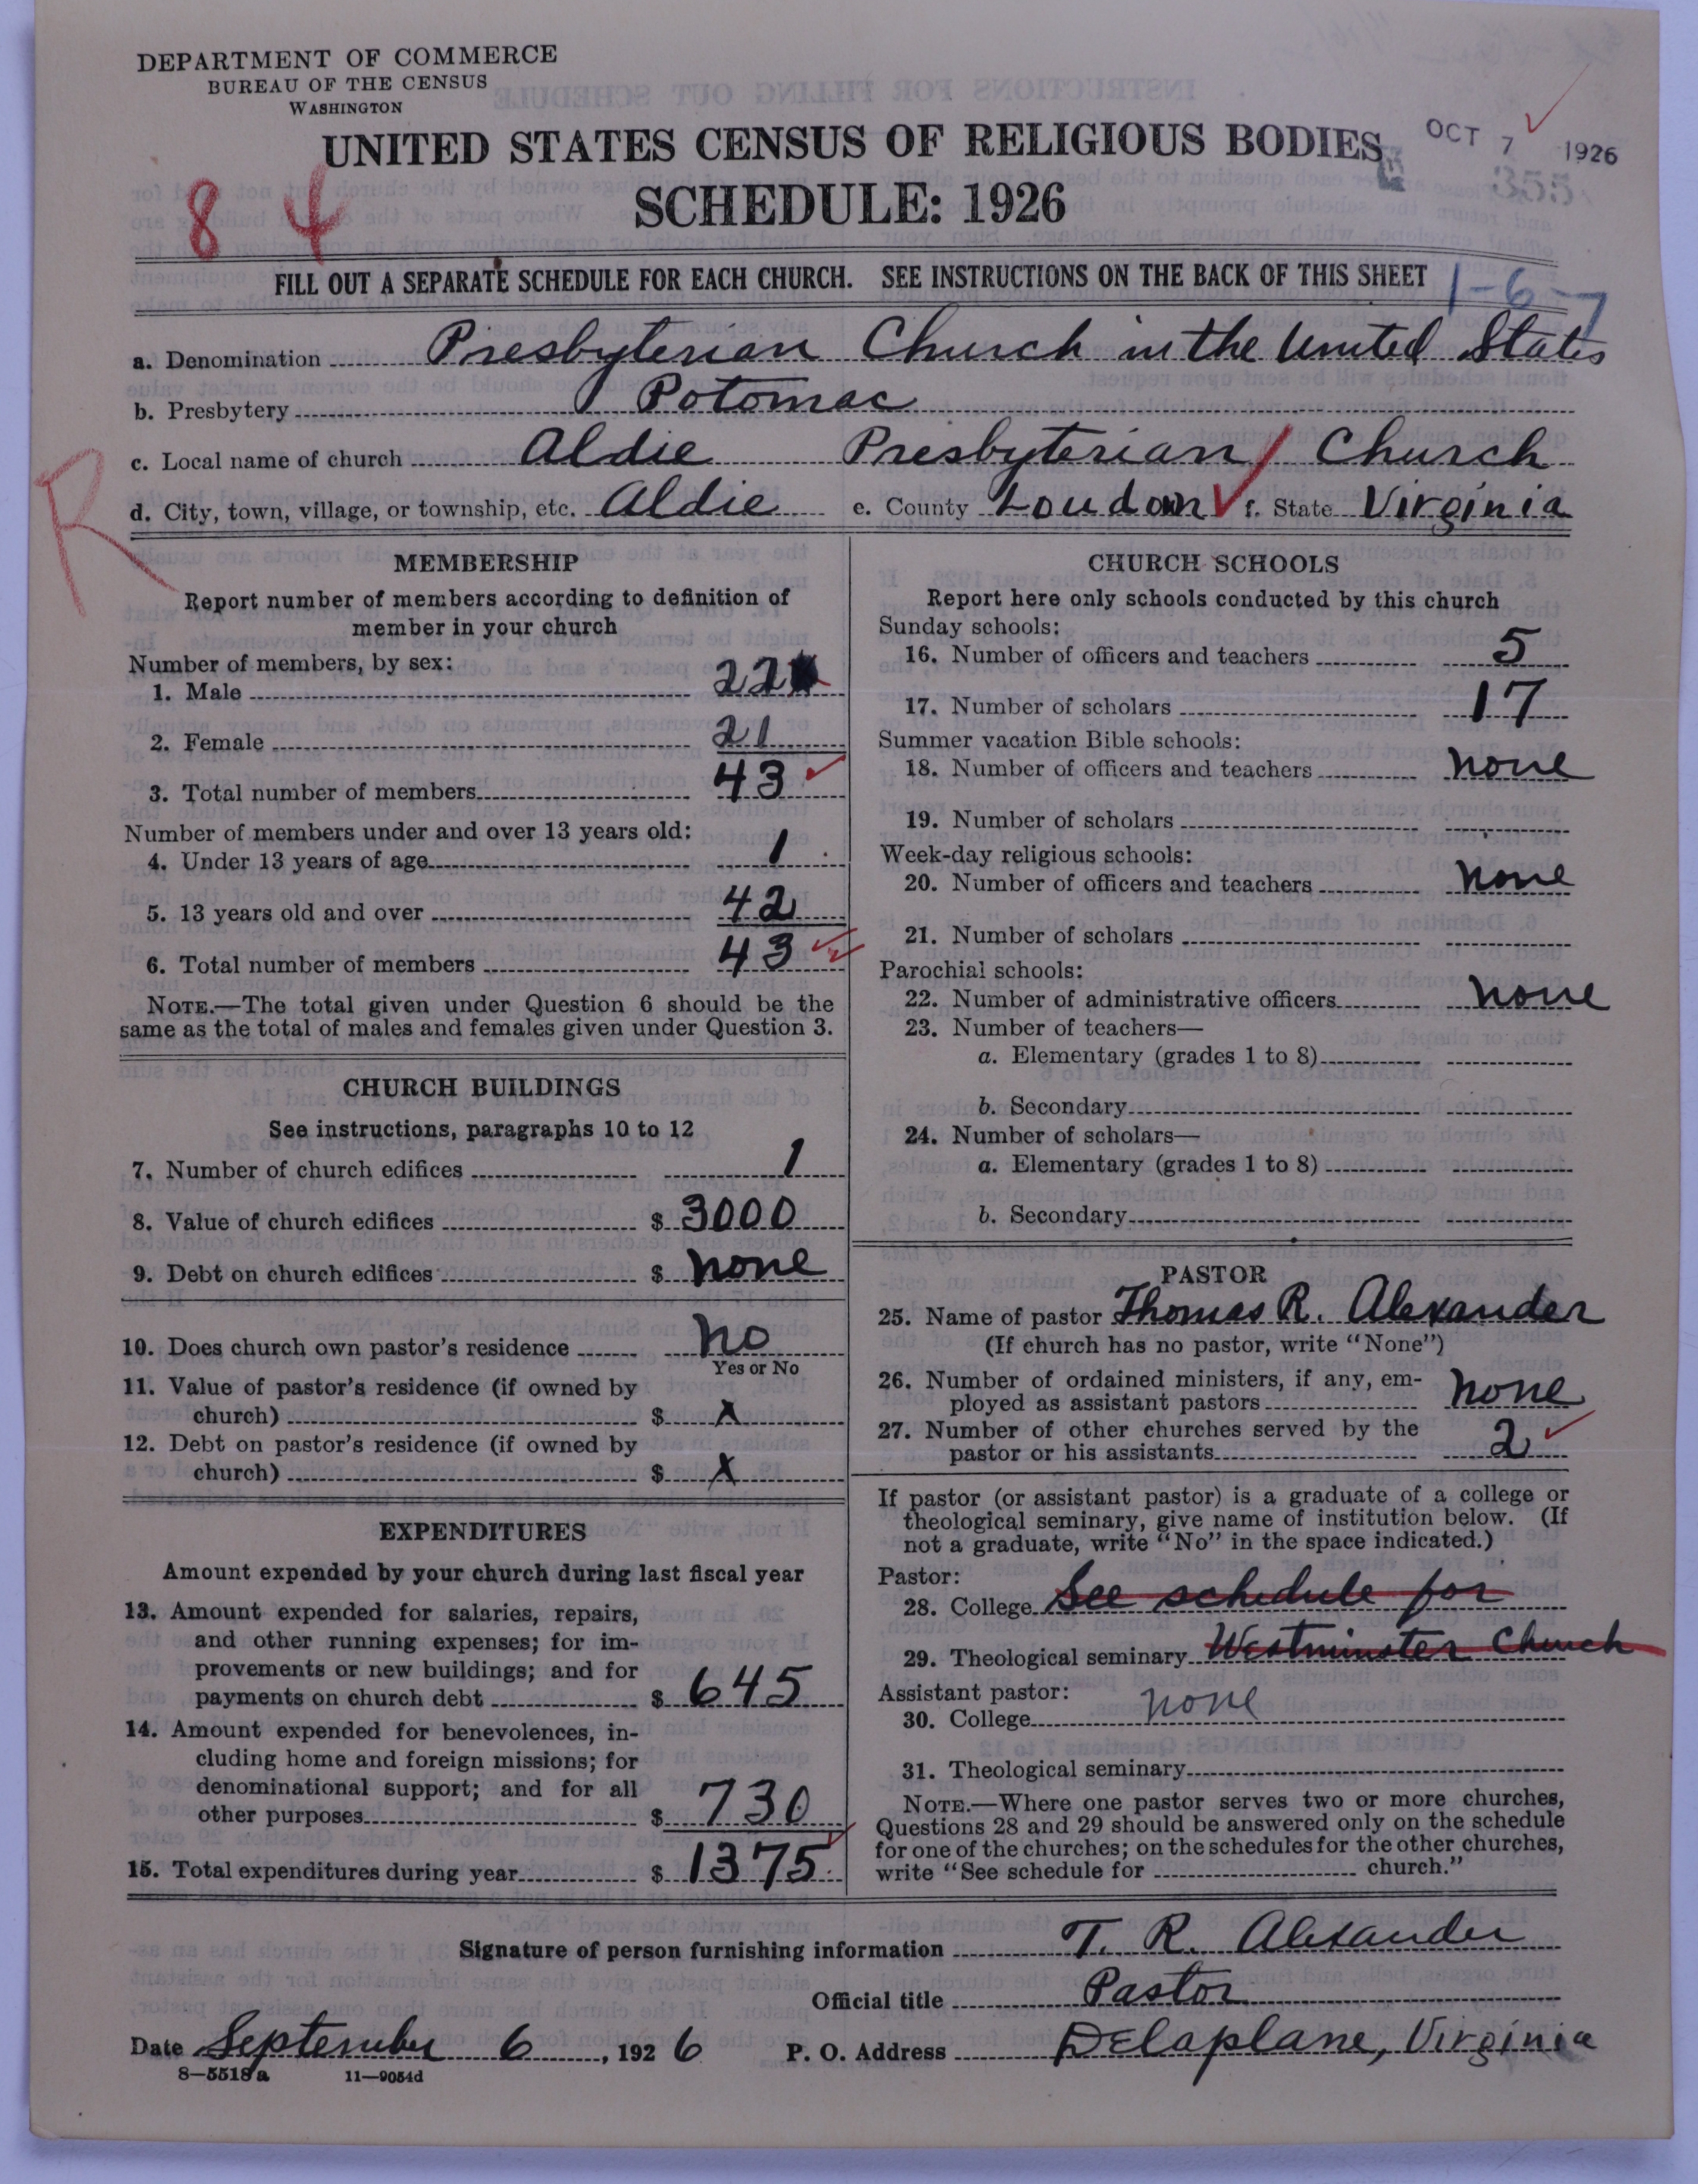 DEPARTMENT OF COMMERCE
BUREAU OF THE CENSUS
WASHINGTON
UNITED STATES CENSUS OF RELIGIOUS BODIES
OCT 7 1926
355
SCHEDULE: 1926
8 4
FILL OUT A SEPARATE SCHEDULE FOR EACH CHURCH. SEE INSTRUCTIONS ON THE BACK OF THIS SHEET
1-6-7
a. Denomination Presbyterian Church in the United States
b. Presbytery Potomac
c. Local name of church Aldie Presbyterian Church
R
d. City, town, village, or township, etc. Aldie e. County Loudon f. State Virginia
MEMBERSHIP
Report number of members according to definition of
member in your church
Number of members, by sex:
1. Male 22
2. Female 21
3. Total number of members 43
Number of members under and over 13 years old:
4. Under 13 years of age 1
5. 13 years old and over 42
6. Total number of members 43
NOTE.—The total given under Question 6 should be the
same as the total of males and females given under Question 3.
CHURCH BUILDINGS
See instructions, paragraphs 10 to 12
7. Number of church edifices 1
8. Value of church edifices $ 3000
9. Debt on church edifices $ none
10. Does church own pastor's residence no
Yes or No
11. Value of pastor's residence (if owned by
church) $ X
12. Debt on pastor's residence (if owned by
church) $ X
EXPENDITURES
Amount expended by your church during last fiscal year
13. Amount expended for salaries, repairs,
and other running expenses; for im-
provements or new buildings; and for
payments on church debt $ 645
14. Amount expended for benevolences, in-
cluding home and foreign missions; for
denominational support; and for all
other purposes $ 730
15. Total expenditures during year $ 1375
CHURCH SCHOOLS
Report here only schools conducted by this church
Sunday schools:
16. Number of officers and teachers 5
17. Number of scholars 17
Summer vacation Bible schools:
18. Number of officers and teachers none
19. Number of scholars
Week-day religious schools:
20. Number of officers and teachers none
21. Number of scholars
Parochial schools:
22. Number of administrative officers none
23. Number of teachers—
a. Elementary (grades 1 to 8)
b. Secondary
24. Number of scholars—
a. Elementary (grades 1 to 8)
b. Secondary
PASTOR
25. Name of pastor Thomas R. Alexander
(If church has no pastor, write "None")
26. Number of ordained ministers, if any, em-
ployed as assistant pastors none
27. Number of other churches served by the
pastor or his assistants 2
If pastor (or assistant pastor) is a graduate of a college or
theological seminary, give name of institution below. (If
not a graduate, write "No" in the space indicated.)
Pastor:
28. College See schedule for
29. Theological seminary Westminster Church
Assistant pastor:
30. College none
31. Theological seminary
NOTE.—Where one pastor serves two or more churches,
Questions 28 and 29 should be answered only on the schedule
for one of the churches; on the schedules for the other churches,
write "See schedule for church."
Signature of person furnishing information T. R. Alexander
Official title Pastor
Date September 6, 1926 P. O. Address Delaplane, Virginia
8—5518a 11—9054d